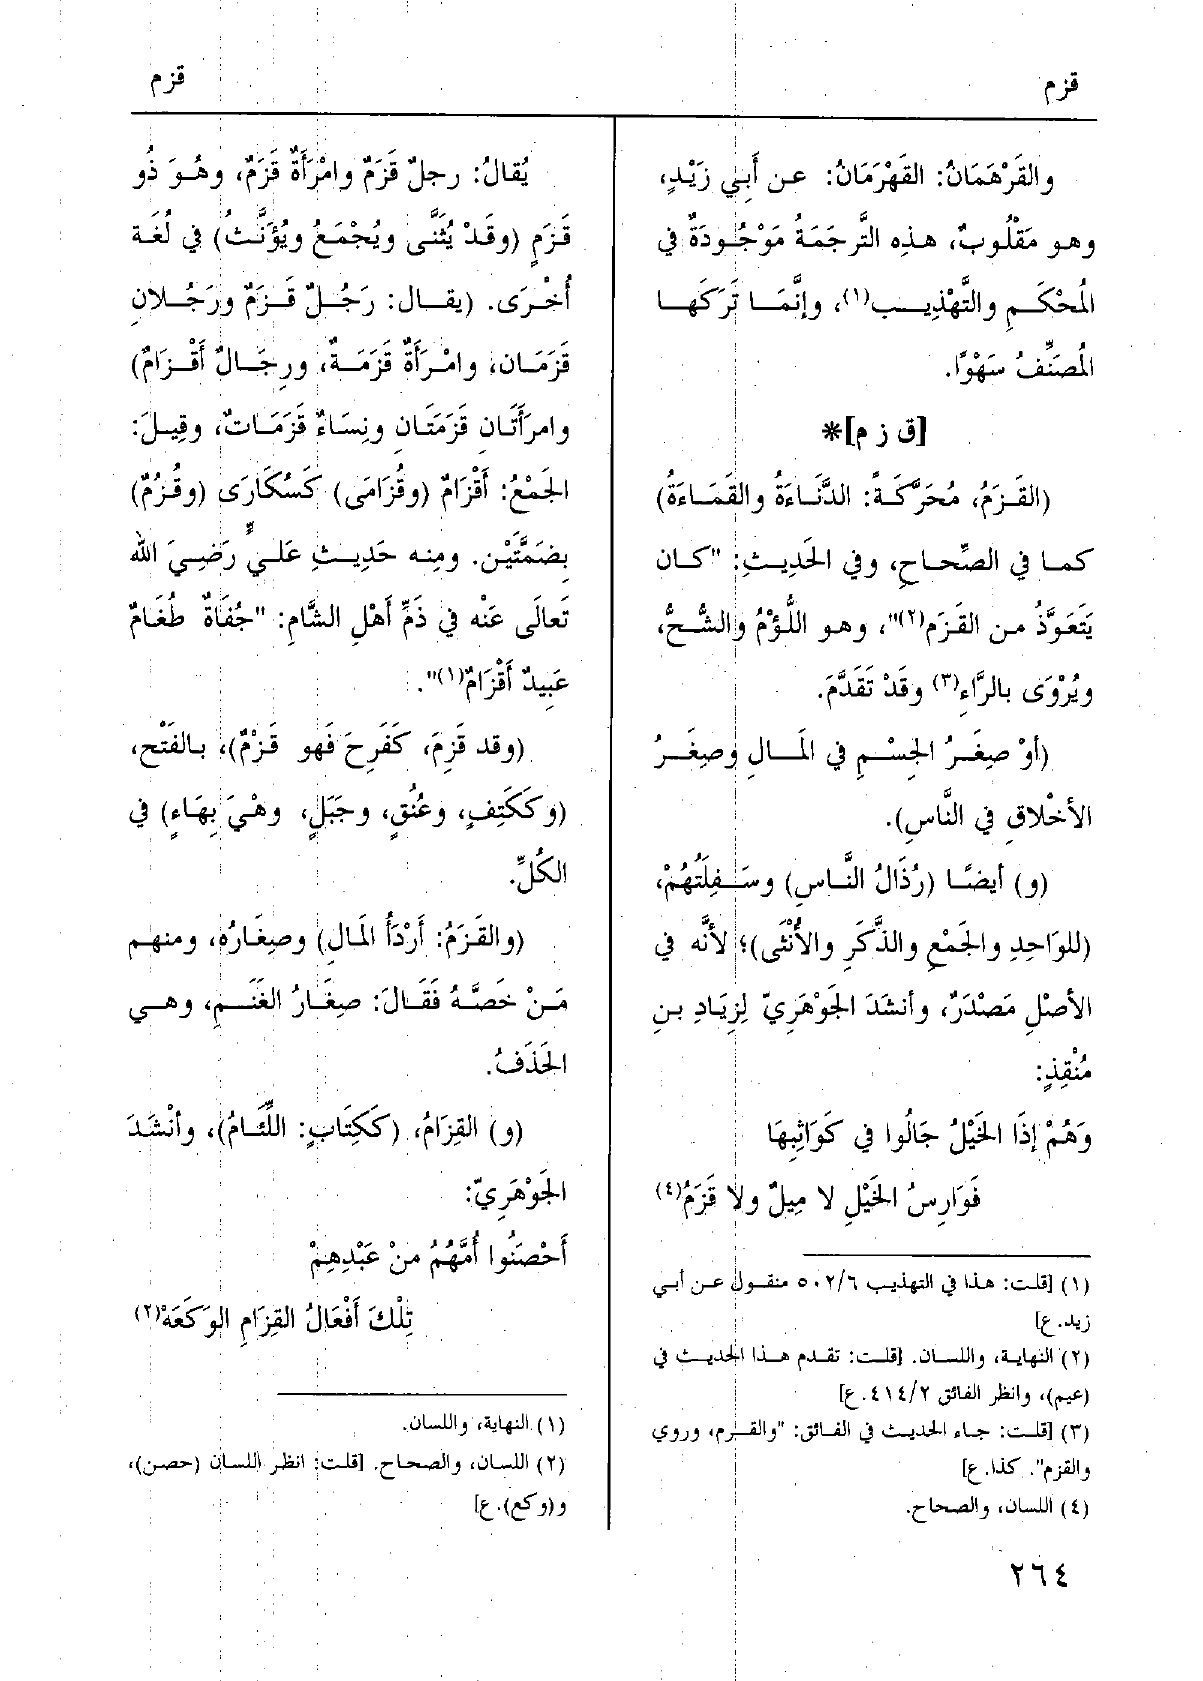 قزم
قزم
والقَرْهَمَانُ: القَهْرَمَانُ: عن أَبِي زَيْدٍ،
وهو مَقْلُوبٌ، هذِه التَّرجَمَةُ مَوْجُودَةٌ في
المُحْكَمِ والتَّهْذِيبِ(١)، وإِنَّمَا تَرَكَها
المُصَنِّفُ سَهْوًا.
[ق ز م]*
(القَزَمُ، مُحَرَّكَةً: الدَّنَاءَةُ والقَمَاءَةُ)
كما في الصِّحاحِ، وفي الحَدِيثِ: "كان
يَتَعَوَّذُ من القَزَمِ(٢)"، وهو اللُّؤْمُ والشُّحُّ،
ويُرْوَى بالرَّاءِ(٣) وقَدْ تَقَدَّمَ.
(أوْ صِغَرُ الجِسْمِ في المَالِ وصِغَرُ
الأخْلاقِ في النَّاسِ).
(و) أيضًا (رُذَالُ النَّاسِ) وسَفِلَتُهُمْ،
(للوَاحِدِ والجَمْعِ والذَّكَرِ والأُنْثَى)؛ لأنَّه في
الأصْلِ مَصْدَرٌ، وأنشَدَ الجَوْهَرِيّ لِزِيَادِ بنِ
مُنْقِذٍ:
وَهُمْ إذَا الخَيْلُ جَالُوا في كَوَاثِبِهَا
فَوَارِسُ الخَيْلِ لا مِيلٌ ولا قَزَمُ(٤)
(١) [قلت: هذا في التهذيب ٥٠٢/٦ منقول عن أبي
زيد. ع]
(٢) النهاية، واللسان. [قلت: تقدم هذا الحديث في
(عيم)، وانظر الفائق ٤١٤/٢. ع]
(٣) [قلت: جاء الحديث في الفائق: "والقرم، وروي
والقزم". كذا. ع]
(٤) اللسان، والصحاح.
يُقالُ: رجلٌ قَزَمٌ وامْرَأَةٌ قَزَمٌ، وهُوَ ذُو
قَزَمٍ (وقَدْ يُثَنَّى ويُجْمَعُ ويُؤَنَّثُ) في لُغَة
أُخْرَى. (يقال: رَجُلٌ قَزَمٌ ورَجُلانِ
قَزَمَان، وامْرَأَةٌ قَزَمَةٌ، ورِجَالٌ أَقْزَامٌ)
وامرَأَتَانِ قَزَمَتَانِ ونِسَاءٌ قَزَمَاتٌ، وقِيلَ:
الجَمْعُ: أَقْزَامٌ (وقُزَامَى) كَسُكَارَى (وقُزُمٌ)
بِضَمَّتَيْن. ومِنه حَدِيثِ عَليٍّ رَضِيَ الله
تَعالَى عَنْه في ذَمِّ أَهْلِ الشَّامِ: "جُفَاةٌ طُغَامٌ
عَبِيدٌ أَقْزَامٌ(١)".
(وقد قَزِمَ، كَفَرِحَ فَهو قَزْمٌ)، بالفَتْح،
(وكَكَتِفٍ، وعُنُقٍ، وجَبَلٍ، وهْيَ بِهَاءٍ) في
الكُلِّ.
(والقَزَمُ: أَرْدَأُ المَالِ) وصِغَارُه، ومنهم
مَنْ خَصَّهُ فَقَالَ: صِغَارُ الغَنَمِ، وهي
الحَذَفُ.
(و) القِزَامُ، (كَكِتَابٍ: اللِّئَامُ)، وأنْشَدَ
الجَوْهَرِيّ:
أَحْصَنُوا أُمَّهُمُ منْ عَبْدِهِمْ
تِلْكَ أَفْعَالُ القِزَامِ الوَكَعَهْ(٢)
(١) النهاية، واللسان.
(٢) اللسان، والصحاح. [قلت: انظر اللسان (حصن)،
و(وكع). ع]
٢٦٤